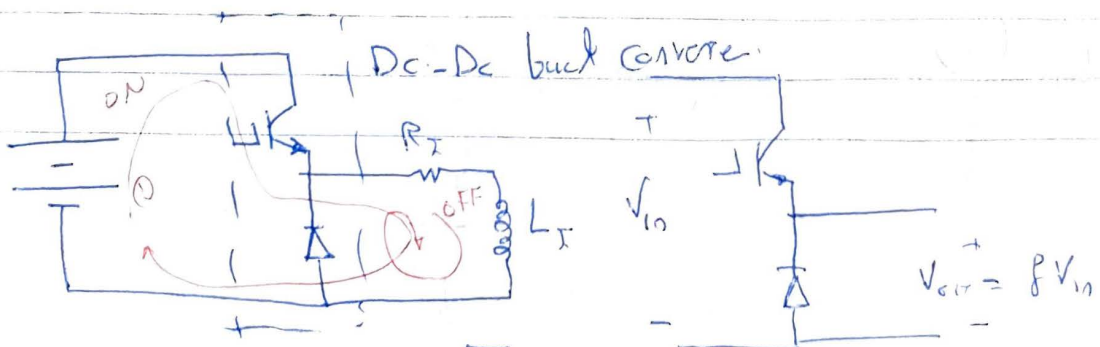 Dc-Dc buck convore.
ON
R_I
+
OFF
L_I
V_in
+
V_out = δ V_in
-
-